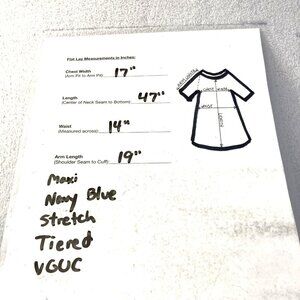 Flat Lay Measurements in Inches:
Chest Width 17"
(Arm Pit to Arm Pit)
Length 47"
(Center of Neck Seam to Bottom)
Waist 14"
(Measured across)
Arm Length 19"
(Shoulder Seam to Cuff)
Maxi
Navy Blue
Stretch
Tiered
VGUC
ARM LENGTH
CHEST WIDTH
WAIST
LENGTH